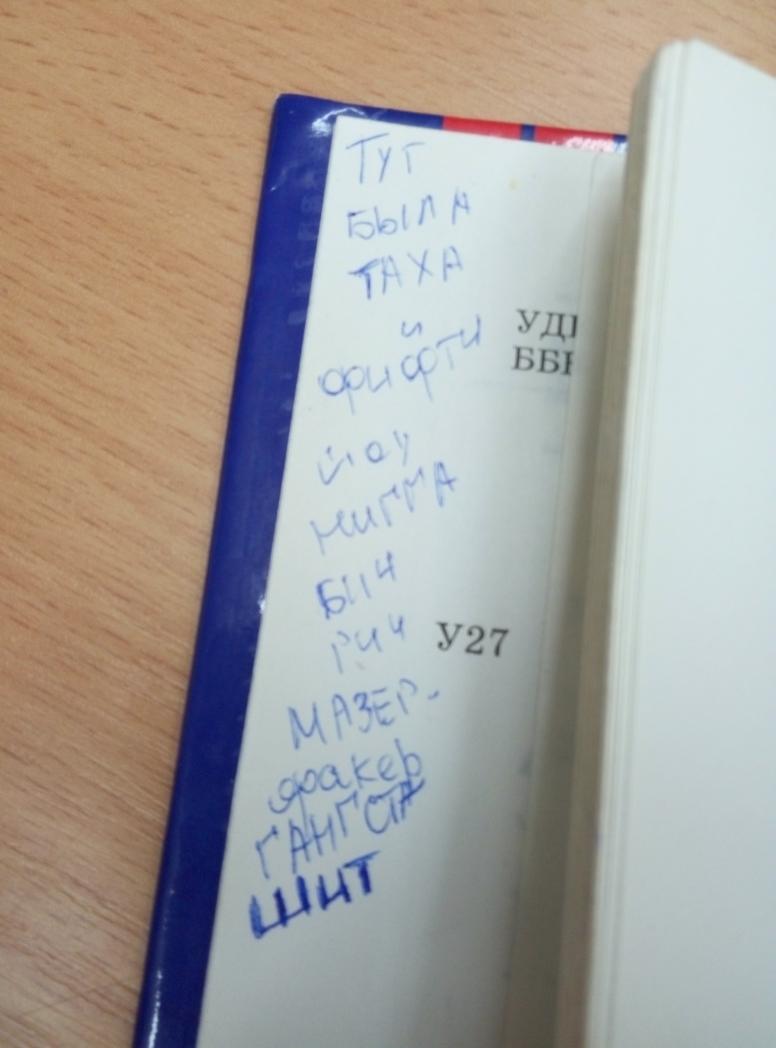 Тут
БЫЛА
ТАХА
фифти
й
йоу
НИГГА
БИЧ
РИЧ
У27
МАЗЕР-
факер
ГАНГСТА
ШИТ
УД
ББ